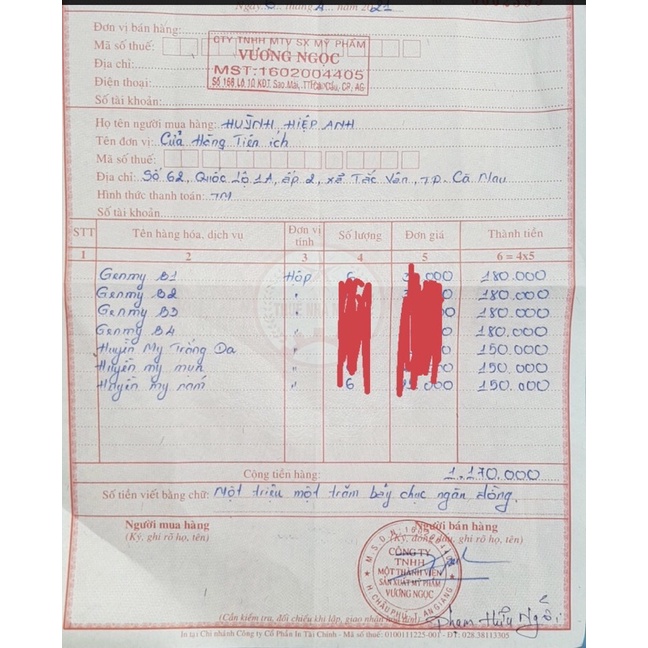 Ngày 8 tháng 4 năm 2021
Đơn vị bán hàng:
Mã số thuế:
Địa chỉ:
Điện thoại:
Số tài khoản:
CTY TNHH MTV SX MỸ PHẨM
VƯƠNG NGỌC
MST:1602004405
Số 166 Lô 10 KĐT Sao Mai, TT Cái Dầu, CP, AG
Họ tên người mua hàng: HUỲNH HIỆP ANH
Tên đơn vị: Cửa Hàng Tiện ích
Mã số thuế:
Địa chỉ: Số 62, Quốc Lộ 1A, ấp 2, xã Tắc Vân, TP. Cà Mau
Hình thức thanh toán: TM
Số tài khoản
STT Tên hàng hóa, dịch vụ Đơn vị tính Số lượng Đơn giá Thành tiền
1 2 3 4 5 6 = 4x5
Genmy B1 Hộp 6 000 180.000
Genmy B2 " 000 180.000
Genmy B3 " 000 180.000
Genmy B4 " 000 180.000
Huyền My Trắng Da " 000 150.000
Huyền my mụn " 000 150.000
Huyền my nám " 6 000 150.000
Cộng tiền hàng: 1.170.000
Số tiền viết bằng chữ: Một triệu một trăm bảy chục ngàn đồng.
Người mua hàng Người bán hàng
(Ký, ghi rõ họ, tên) (Ký, đóng dấu, ghi rõ họ, tên)
CÔNG TY
TNHH
MỘT THÀNH VIÊN
SẢN XUẤT MỸ PHẨM
VƯƠNG NGỌC
H. CHÂU PHÚ T. AN GIANG
Phạm Thúy Ngôi
(Cần kiểm tra, đối chiếu khi lập, giao nhận hóa đơn)
In tại Chi nhánh Công ty Cổ Phần In Tài Chính - Mã số thuế: 0100111225-001 - ĐT: 028.38113305